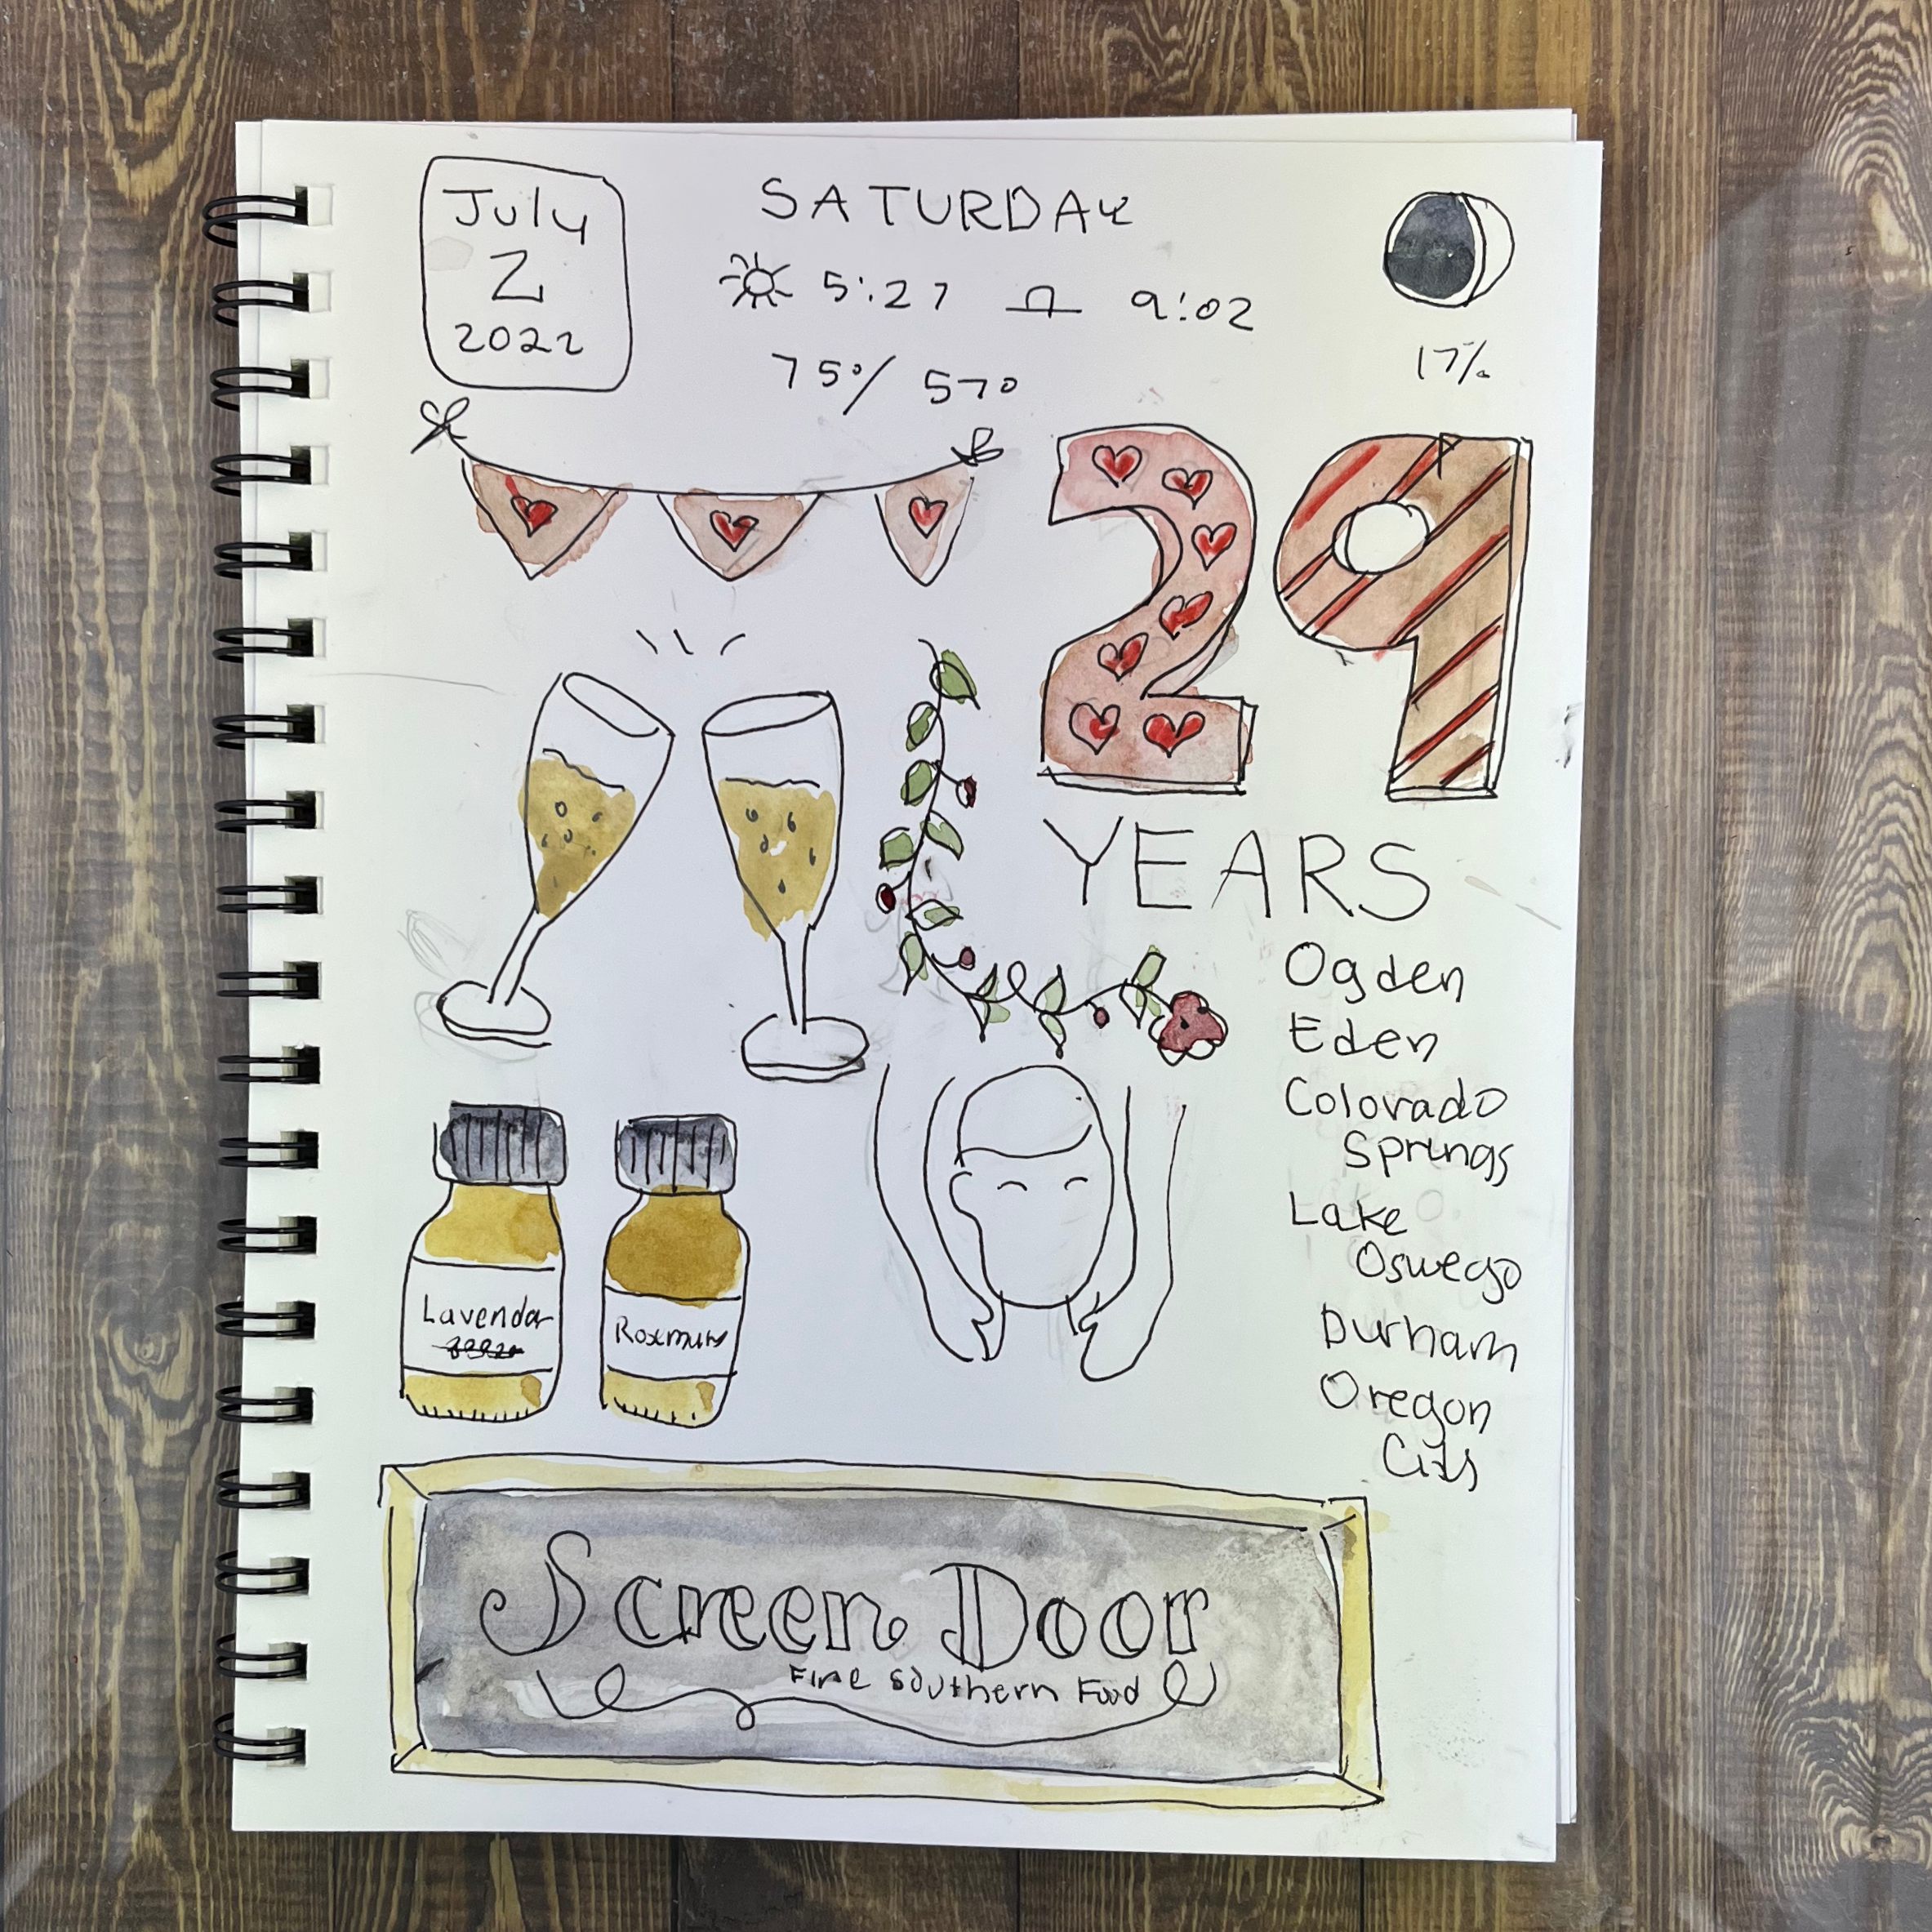 July
2
2022
SATURDAY
5:27 9:02
75°/ 57°
17%
29
YEARS
Ogden
Eden
Colorado
Springs
Lake
Oswego
Durham
Oregon
City
Lavendar
Rosemary
Screen Door
Fine Southern Food